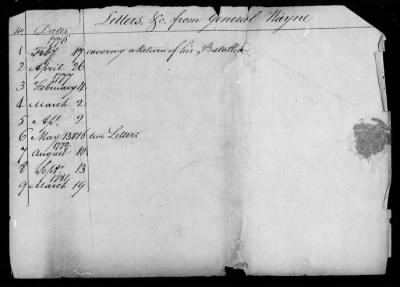 Letters, &c. from General Wayne
No Dates
1776
1 Feby 17 covering a Return of his Battalion
2 April 26
1777
3 February 4
4 March 2
5 Ap. 2
6 May 13 & 16 two Letters
1779
7 August 10
8 Sept. 13
1781
9 March 19